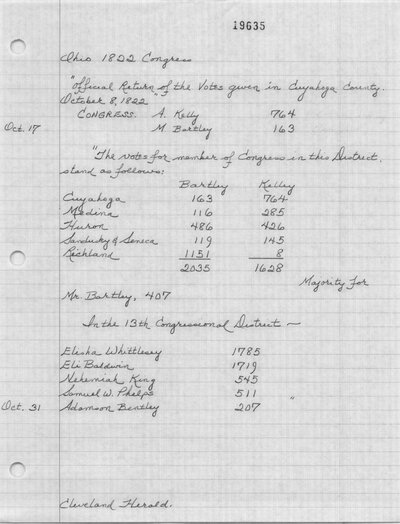 19635
Ohio 1822 Congress
"Official Return of the Votes given in Cuyahoga County.
October 8, 1822
CONGRESS. A. Kelly 764
Oct. 17 M. Bartley 163
"The votes for member of Congress in this District.
stand as follows:
Bartley Kelley
Cuyahoga 163 764
Medina 116 285
Huron 486 426
Sandusky & Seneca 119 145
Richland 1151 8
2035 1628
Majority For
Mr. Bartley, 407
In the 13th Congressional District ~
Elisha Whittlesey 1785
Eli Baldwin 1719
Nehemiah King 545
Samuel W. Phelps 511 "
Oct. 31 Adamson Bentley 207
Cleveland Herald.